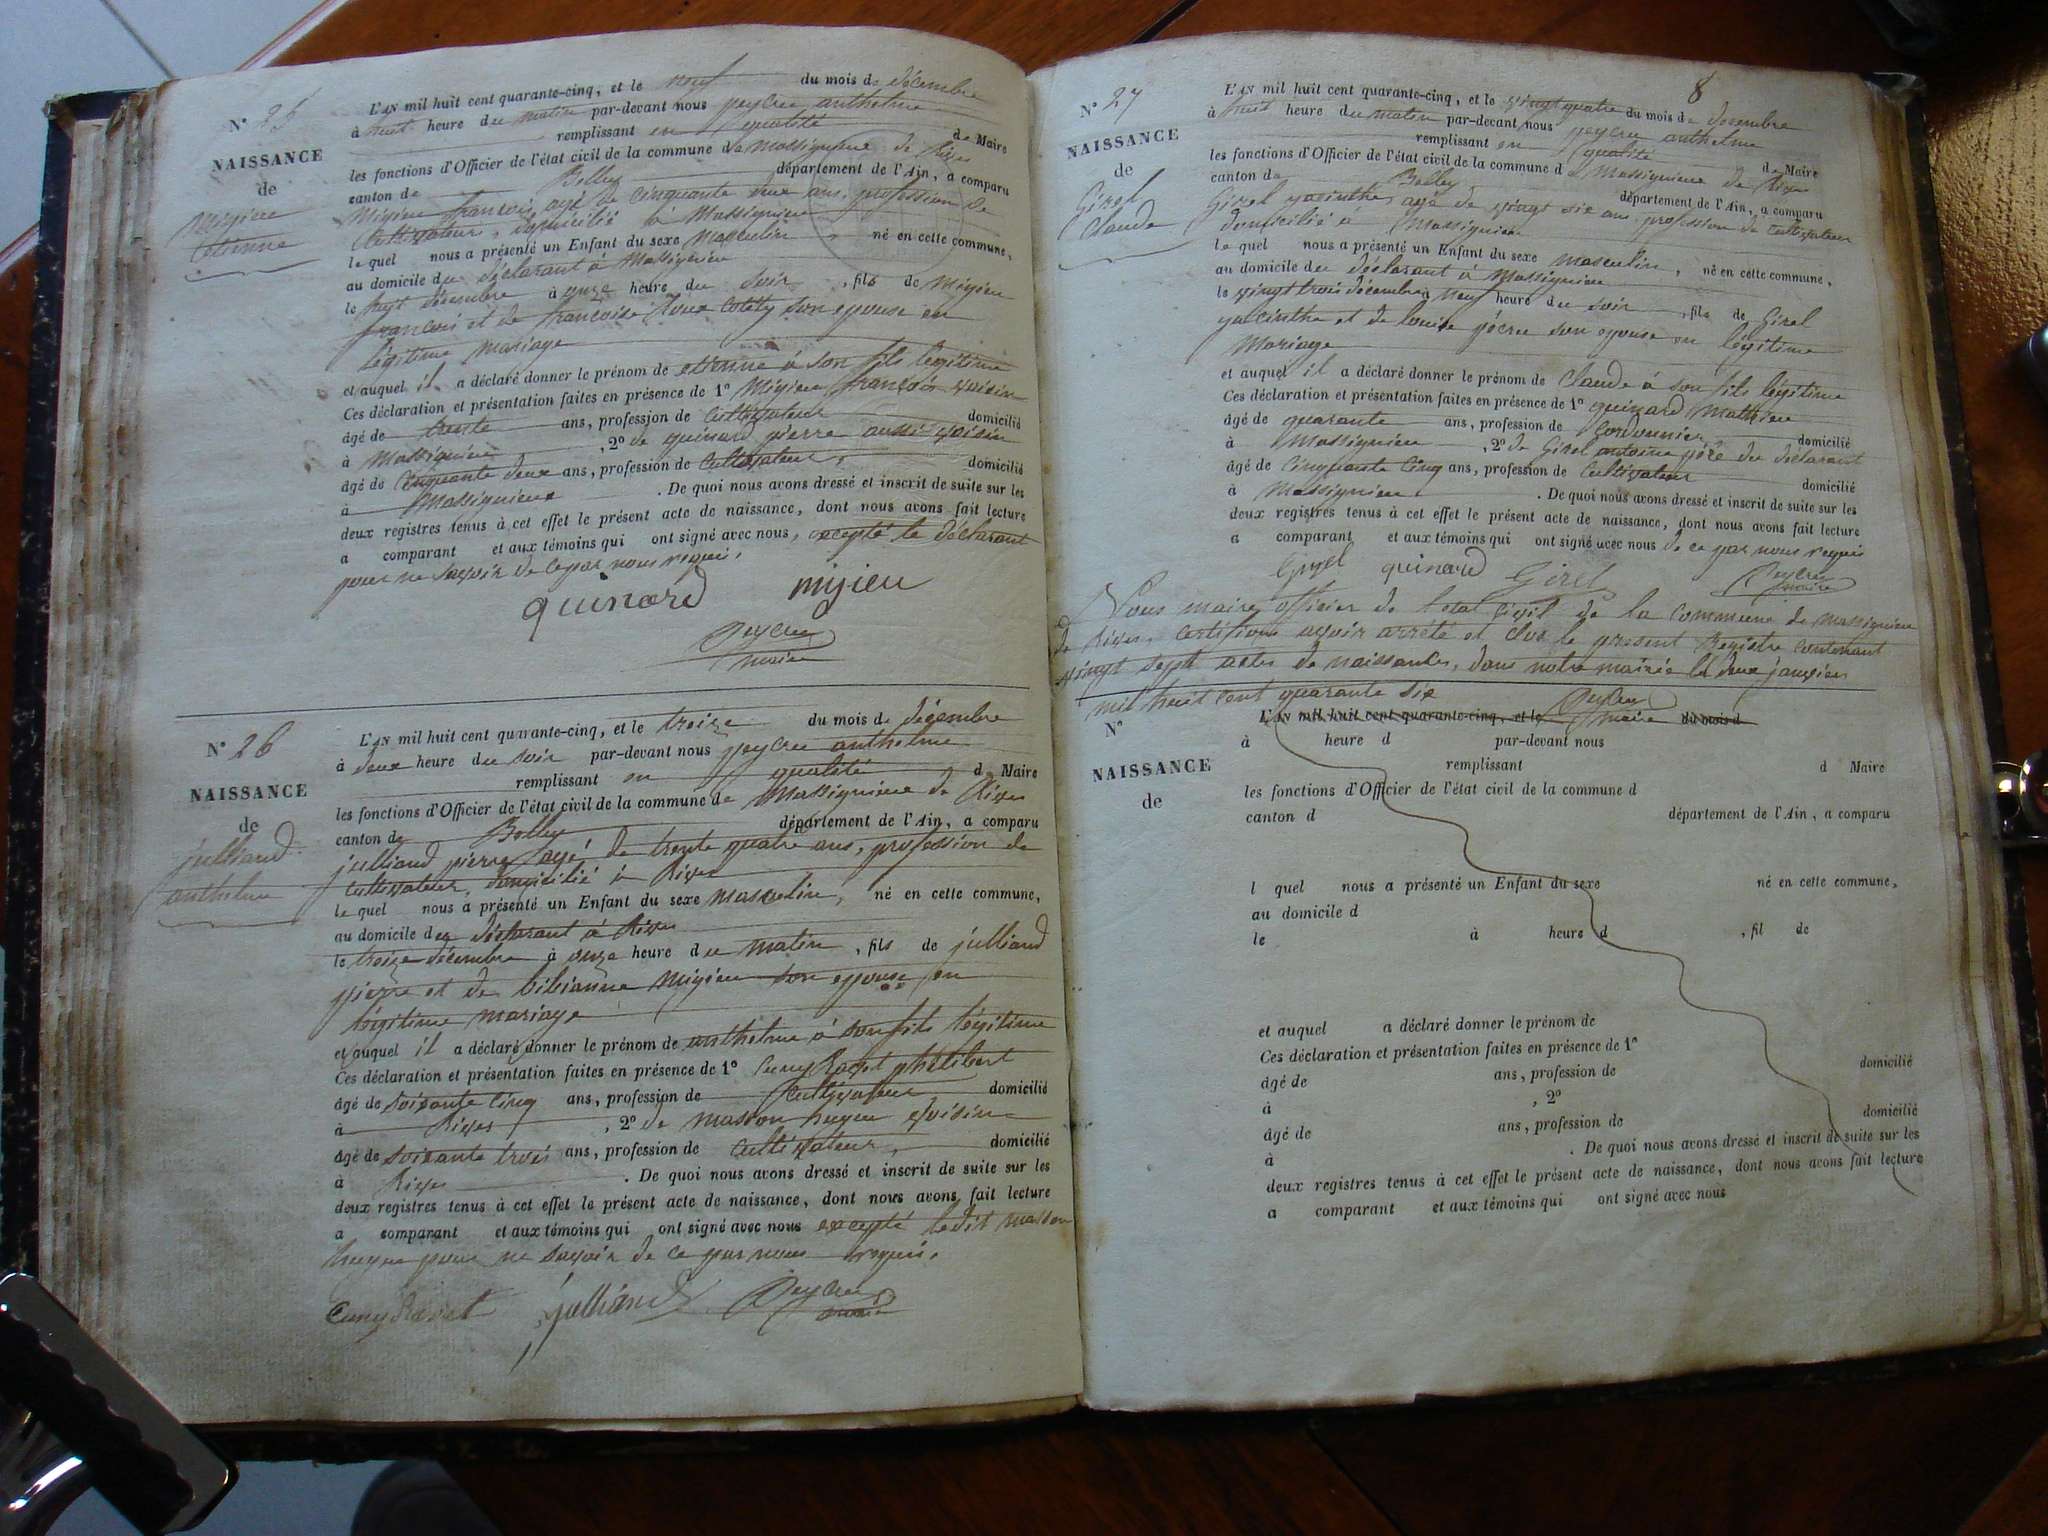 N° 25
NAISSANCE
de
Migieu
Etienne
L'AN mil huit cent quarante-cinq, et le neuf du mois de décembre
à huit heure du matin par-devant nous peycru anthelme
remplissant en qualité de Maire
les fonctions d'Officier de l'état civil de la commune de Massignieu de Rives
canton de Belley département de l'Ain, a comparu
Migieu françois agé de cinquante deux ans, profession de
Cultivateur, domicilié à Massignieu
le quel nous a présenté un Enfant du sexe masculin, né en cette commune,
au domicile du déclarant à Massignieu
le huit décembre à onze heure du soir, fils de Migieu
françois et de francoise son epouse en
légitime mariage
et auquel il a déclaré donner le prénom de etienne à son fils légitime
Ces déclaration et présentation faites en présence de 1° Migieu françois voisin
âgé de trente ans, profession de Cultivateur domicilié
à Massignieu, 2° de quinard pierre aussi voisin
âgé de cinquante deux ans, profession de Cultivateur, domicilié
à Massignieux. De quoi nous avons dressé et inscrit de suite sur les
deux registres tenus à cet effet le présent acte de naissance, dont nous avons fait lecture
a comparant et aux témoins qui ont signé avec nous, excepté le déclarant
pour ne savoir de ce par nous requi.
quinard migieu
Peycru
maire
N° 26
NAISSANCE
de
julliand
anthelme
L'AN mil huit cent quarante-cinq, et le treize du mois de décembre
à deux heure du soir par-devant nous peycru anthelme
remplissant en qualité d Maire
les fonctions d'Officier de l'état civil de la commune de Massignieu de Rives
canton de Belley département de l'Ain, a comparu
julliand pierre agé de trente quatre ans, profession de
cultivateur, domicilié à Rives
le quel nous a présenté un Enfant du sexe masculin, né en cette commune,
au domicile du déclarant à Rives
le treize décembre à onze heure du matin, fils de julliand
pierre et de bibianne Migieu son epouse en
légitime mariage
et auquel il a déclaré donner le prénom de anthelme à son fils légitime
Ces déclaration et présentation faites en présence de 1° Cuny Ravet philibert
âgé de soixante cinq ans, profession de Cultivateur domicilié
à Rives, 2° de masson hugue voisin
âgé de soixante trois ans, profession de cultivateur, domicilié
à Rives. De quoi nous avons dressé et inscrit de suite sur les
deux registres tenus à cet effet le présent acte de naissance, dont nous avons fait lecture
a comparant et aux témoins qui ont signé avec nous excepté ledit masson
hugue pour ne savoir de ce par nous requi.
Cuny Ravet julliand Peycru
maire
8
N° 27
NAISSANCE
de
Girel
Claude
L'AN mil huit cent quarante-cinq, et le vingt quatre du mois de decembre
à huit heure du matin par-devant nous peycru anthelme
remplissant en qualité de Maire
les fonctions d'Officier de l'état civil de la commune d Massignieu de Rives
canton de Belley département de l'Ain, a comparu
Girel yacinthe agé de vingt six ans profession de cultivateur
domicilié à Massignieu
le quel nous a présenté un Enfant du sexe masculin, né en cette commune,
au domicile du déclarant à Massignieu
le vingt trois décembre à neuf heure du soir, fils de Girel
yacinthe et de louise pécru son epouse en légitime
Mariage
et auquel il a déclaré donner le prénom de Claude à son fils légitime
Ces déclaration et présentation faites en présence de 1° quinard Mathieu
âgé de quarante ans, profession de Cordonnier domicilié
à Massignieu, 2° de Girel antoine père du déclarant
âgé de cinquante cinq ans, profession de cultivateur domicilié
à Massignieu. De quoi nous avons dressé et inscrit de suite sur les
deux registres tenus à cet effet le présent acte de naissance, dont nous avons fait lecture
a comparant et aux témoins qui ont signé avec nous de ce par nous requis
Girel quinard Girel Peycru
maire
Nous maire officier de l'etat civil de la commune de massignieu
de Rives, certifions avoir arrété et clos le present Registre contenant
vingt sept actes de naissances, dans notre mairie le deux janvier
mil huit cent quarante six Peycru
maire
N°
NAISSANCE
de
L'AN mil huit cent quarante-cinq, et le du mois d
à heure d par-devant nous
remplissant d Maire
les fonctions d'Officier de l'état civil de la commune d
canton d département de l'Ain, a comparu
l quel nous a présenté un Enfant du sexe né en cette commune,
au domicile d
le à heure d , fil de
et auquel a déclaré donner le prénom de
Ces déclaration et présentation faites en présence de 1°
âgé de ans, profession de domicilié
à , 2°
âgé de ans, profession de domicilié
à . De quoi nous avons dressé et inscrit de suite sur les
deux registres tenus à cet effet le présent acte de naissance, dont nous avons fait lecture
a comparant et aux témoins qui ont signé avec nous